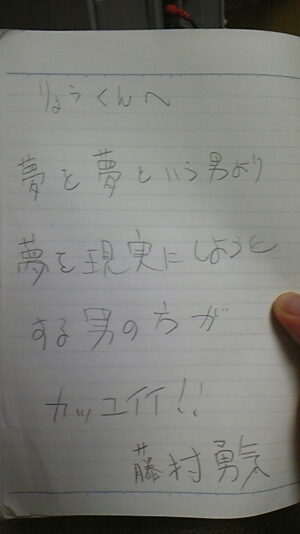 りょうくんへ
夢を夢という男より
夢を現実にしようと
する男の方が
カッコイイ!!
藤村勇気